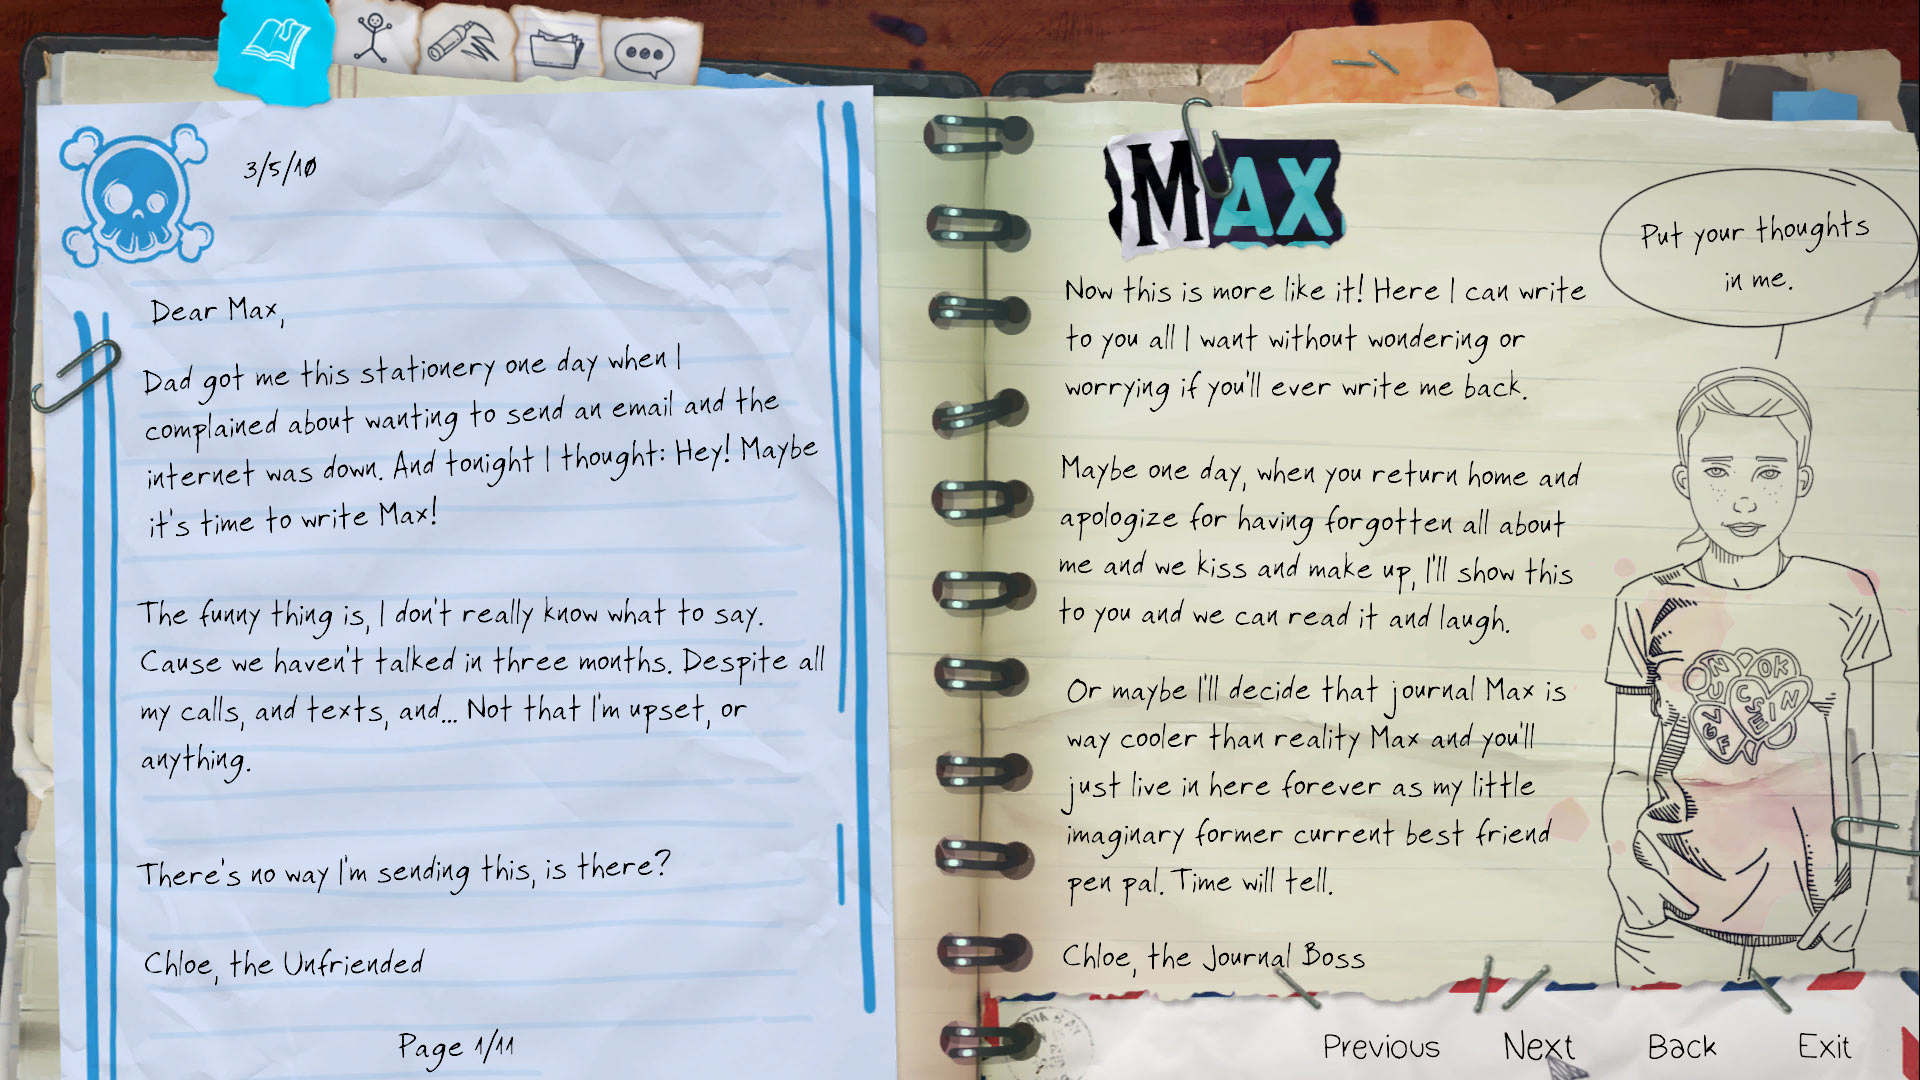 3/5/10
Dear Max,
Dad got me this stationery one day when I
complained about wanting to send an email and the
internet was down. And tonight I thought: Hey! Maybe
it's time to write Max!
The funny thing is, I don't really know what to say.
Cause we haven't talked in three months. Despite all
my calls, and texts, and... Not that I'm upset, or
anything.
There's no way I'm sending this, is there?
Chloe, the Unfriended
Page 1/11
MAX
Put your thoughts
in me.
Now this is more like it! Here I can write
to you all I want without wondering or
worrying if you'll ever write me back.
Maybe one day, when you return home and
apologize for having forgotten all about
me and we kiss and make up, I'll show this
to you and we can read it and laugh.
Or maybe I'll decide that journal Max is
way cooler than reality Max and you'll
just live in here forever as my little
imaginary former current best friend
pen pal. Time will tell.
Chloe, the Journal Boss
Previous Next Back Exit